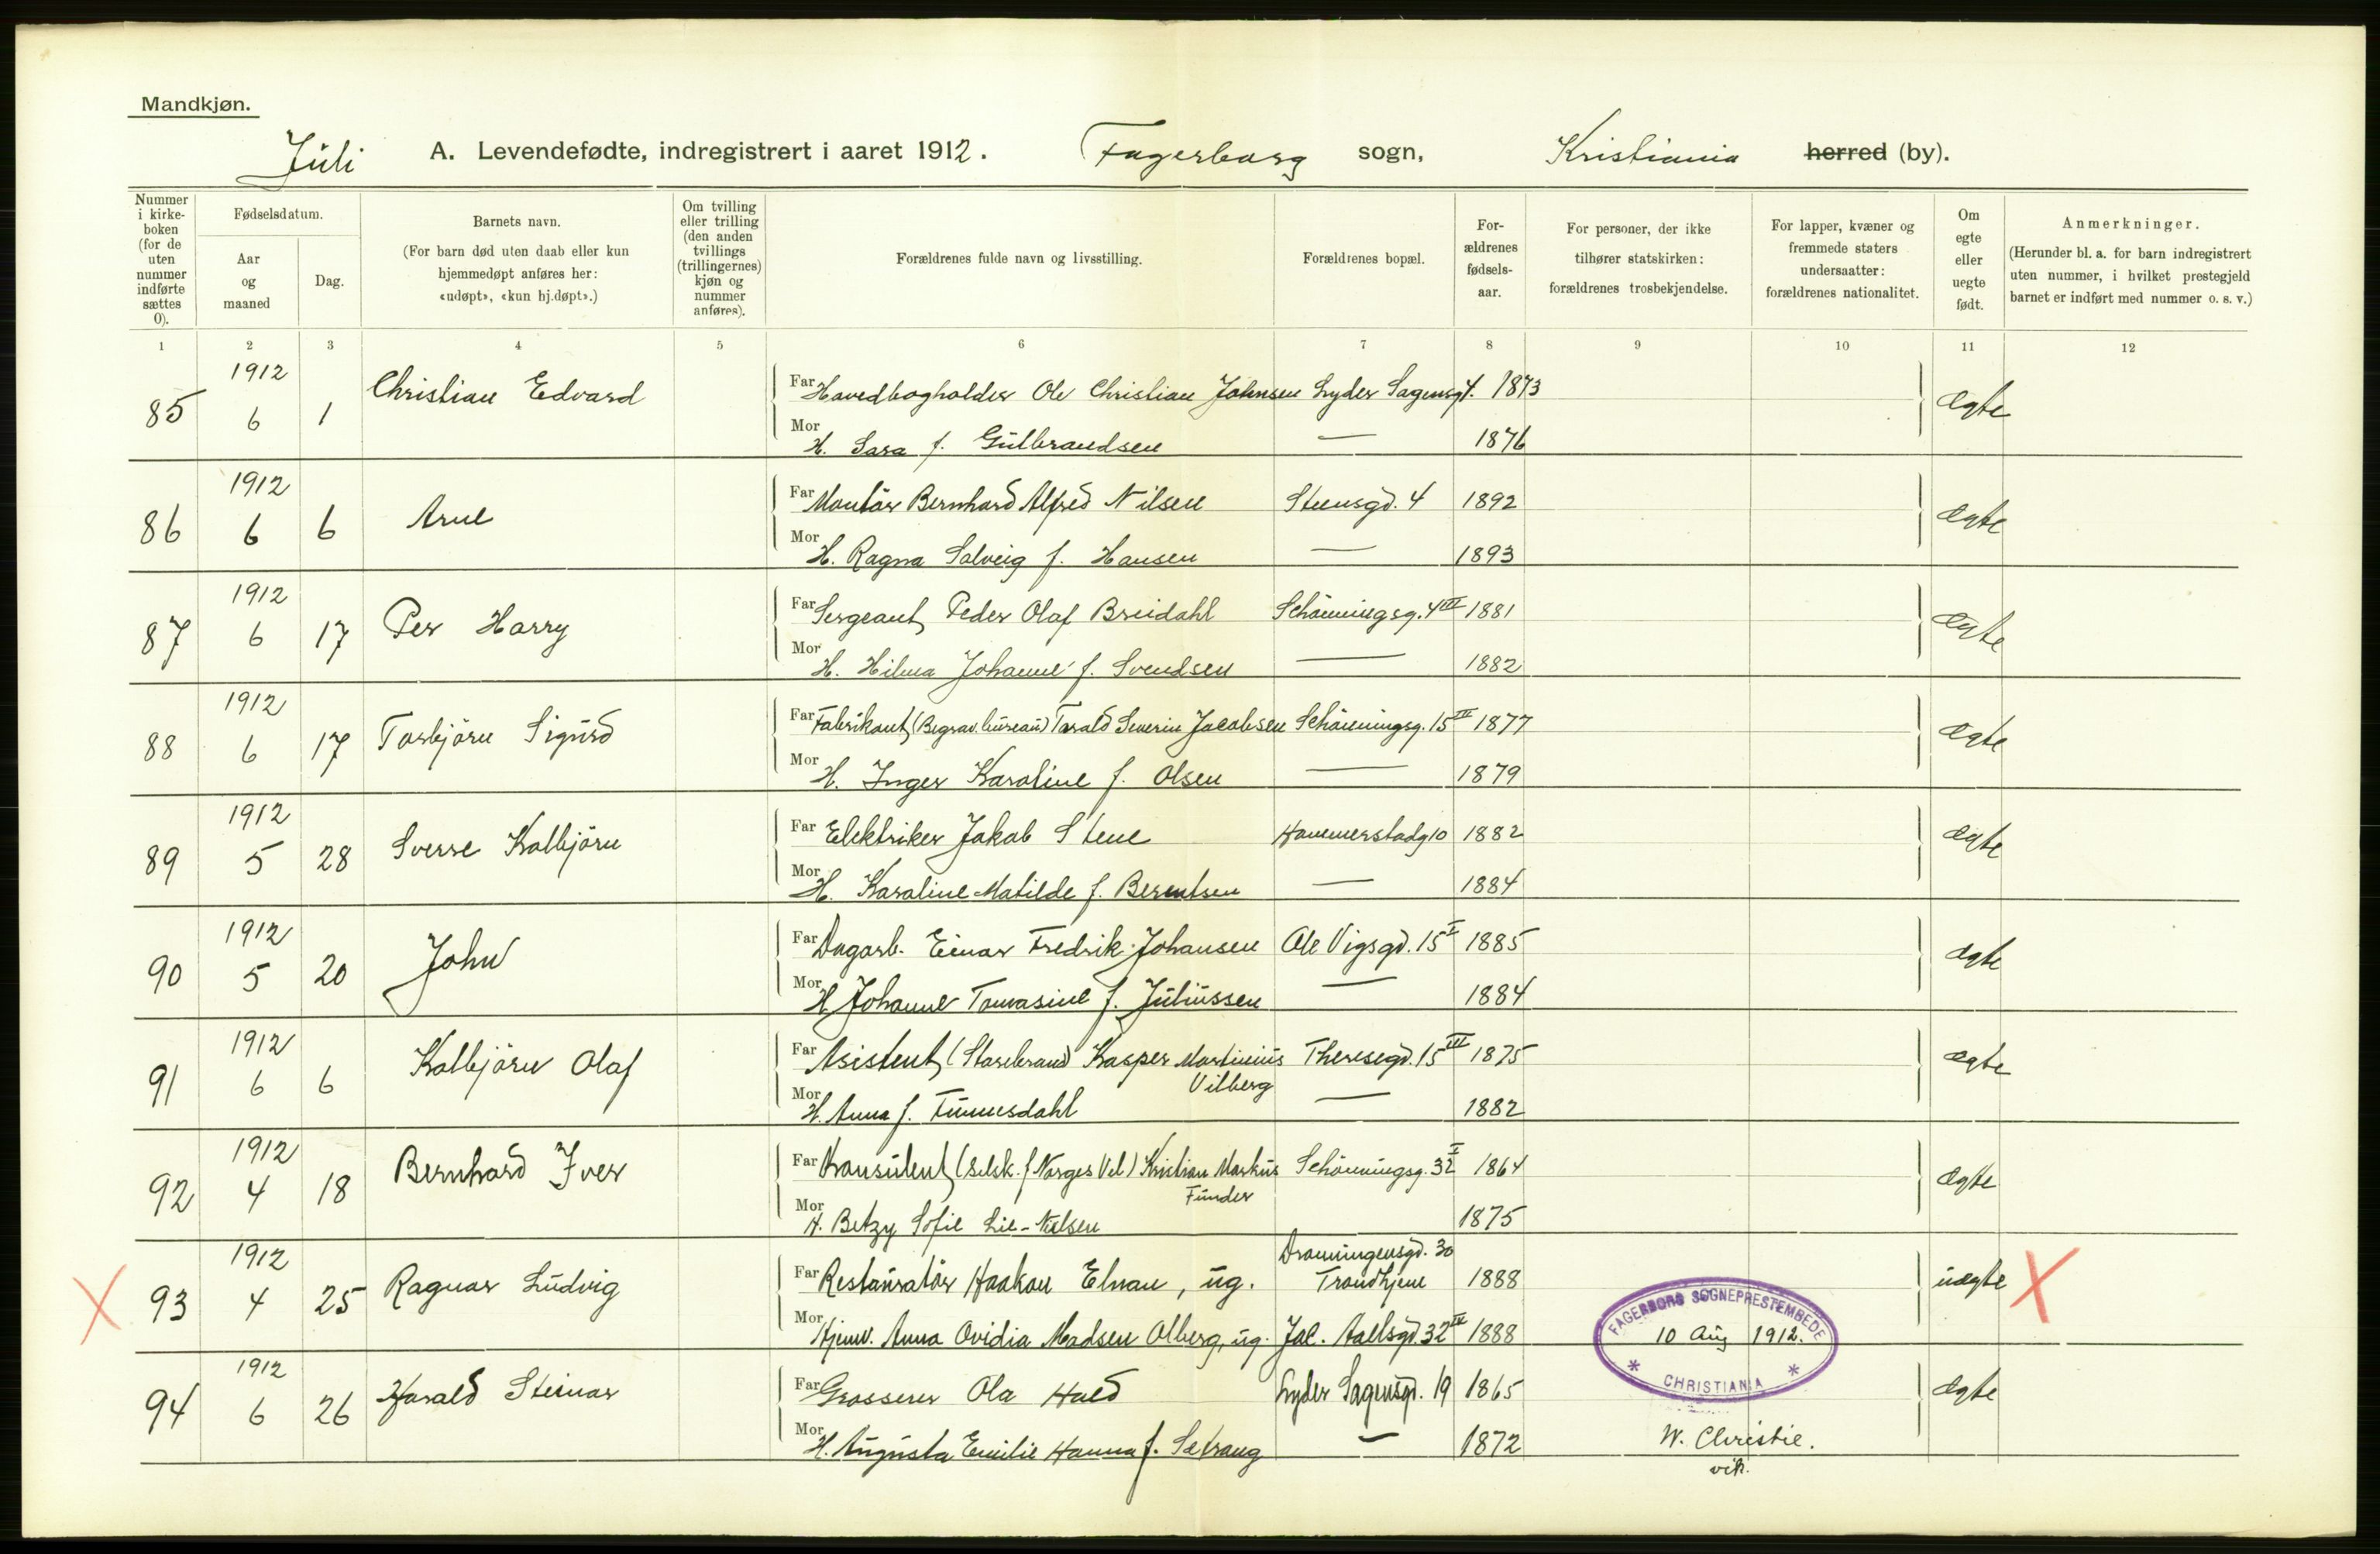 Mandkjøn.
Juli A. Levendefødte, indregistrert i aaret 1912. Fagerborg sogn, Kristiania herred (by).
Nummer i kirke-boken (for de uten nummer indførte sættes 0).
Fødselsdatum.
Aar og maaned
Dag.
Barnets navn.
(For barn død uten daab eller kun hjemmedøpt anføres her: «udøpt», «kun hj.døpt».)
Om tvilling eller trilling (den anden tvillings (trillingernes) kjøn og nummer anføres).
Forældrenes fulde navn og livsstilling.
Forældrenes bopæl.
For-ældrenes fødsels-aar.
For personer, der ikke tilhører statskirken: forældrenes trosbekjendelse.
For lapper, kvæner og fremmede staters undersaatter: forældrenes nationalitet.
Om egte eller uegte født.
Anmerkninger.
(Herunder bl. a. for barn indregistrert uten nummer, i hvilket prestegjeld barnet er indført med nummer o. s. v.)
1 2 3 4 5 6 7 8 9 10 11 12
1912
85 6 1 Christian Edvard Far Hovedbogholder Ole Christian Johnsen Lyder Sagensg 4. 1873 ægte
Mor H. Sara f. Gulbrandsen — 1876
1912
86 6 6 Arne Far Montör Bernhard Alfred Nilsen Steensgd. 4 1892 ægte
Mor H. Ragna Solveig f. Hansen — 1893
1912
87 6 17 Per Harry Far Sergeant Peder Olaf Breidahl Schönningsg. 4 III 1881 ægte
Mor H. Hilma Johanne f. Svendsen — 1882
1912
88 6 17 Torbjörn Sigurd Far Fabrikant (Begrav. bureau) Tarald Severin Jacobsen Schönningsg. 15 III 1877 ægte
Mor H. Inger Karoline f. Olsen — 1879
1912
89 5 28 Sverre Kolbjörn Far Elektriker Jakob Stene Hammerstadg 10 1882 ægte
Mor H. Karoline Matilde f. Berentsen — 1884
1912
90 5 20 John Far Dagarb. Einar Fredrik Johansen Ole Vigsgd. 15 I 1885 ægte
Mor H. Johanne Tomasine f. Juliussen — 1884
1912
91 6 6 Kolbjörn Olaf Far Asistent (Storebrand) Kasper Martinius Theresegd. 15 III 1875 ægte
Vilberg
Mor H. Anna f. Finnesdahl — 1882
1912
92 4 18 Bernhard Iver Far Konsulent (Selsk. f Norges Vel) Kristian Markus Schönningsg. 32 I 1864 ægte
Funder
Mor H. Betzy Sofie Lie-Nielsen 1875
1912 Dronningensgd. 30
X 93 4 25 Ragnar Ludvig Far Restauratör Haakon Elnan, ug. Trondhjem 1888 uægte X
Mor Hjemv. Anna Ovidia Madsen Olberg, ug. Jac. Aallsgd. 32 IV 1888
FAGERBORG SOGNEPRESTEMBEDE
10 Aug 1912.
* CHRISTIANIA *
1912
94 6 26 Harald Steinar Far Grosserer Ola Hald Lyder Sagensgd. 19 1865 ægte
Mor H. Augusta Emilie Hanna f. Setrang — 1872
W. Christie.
vik.